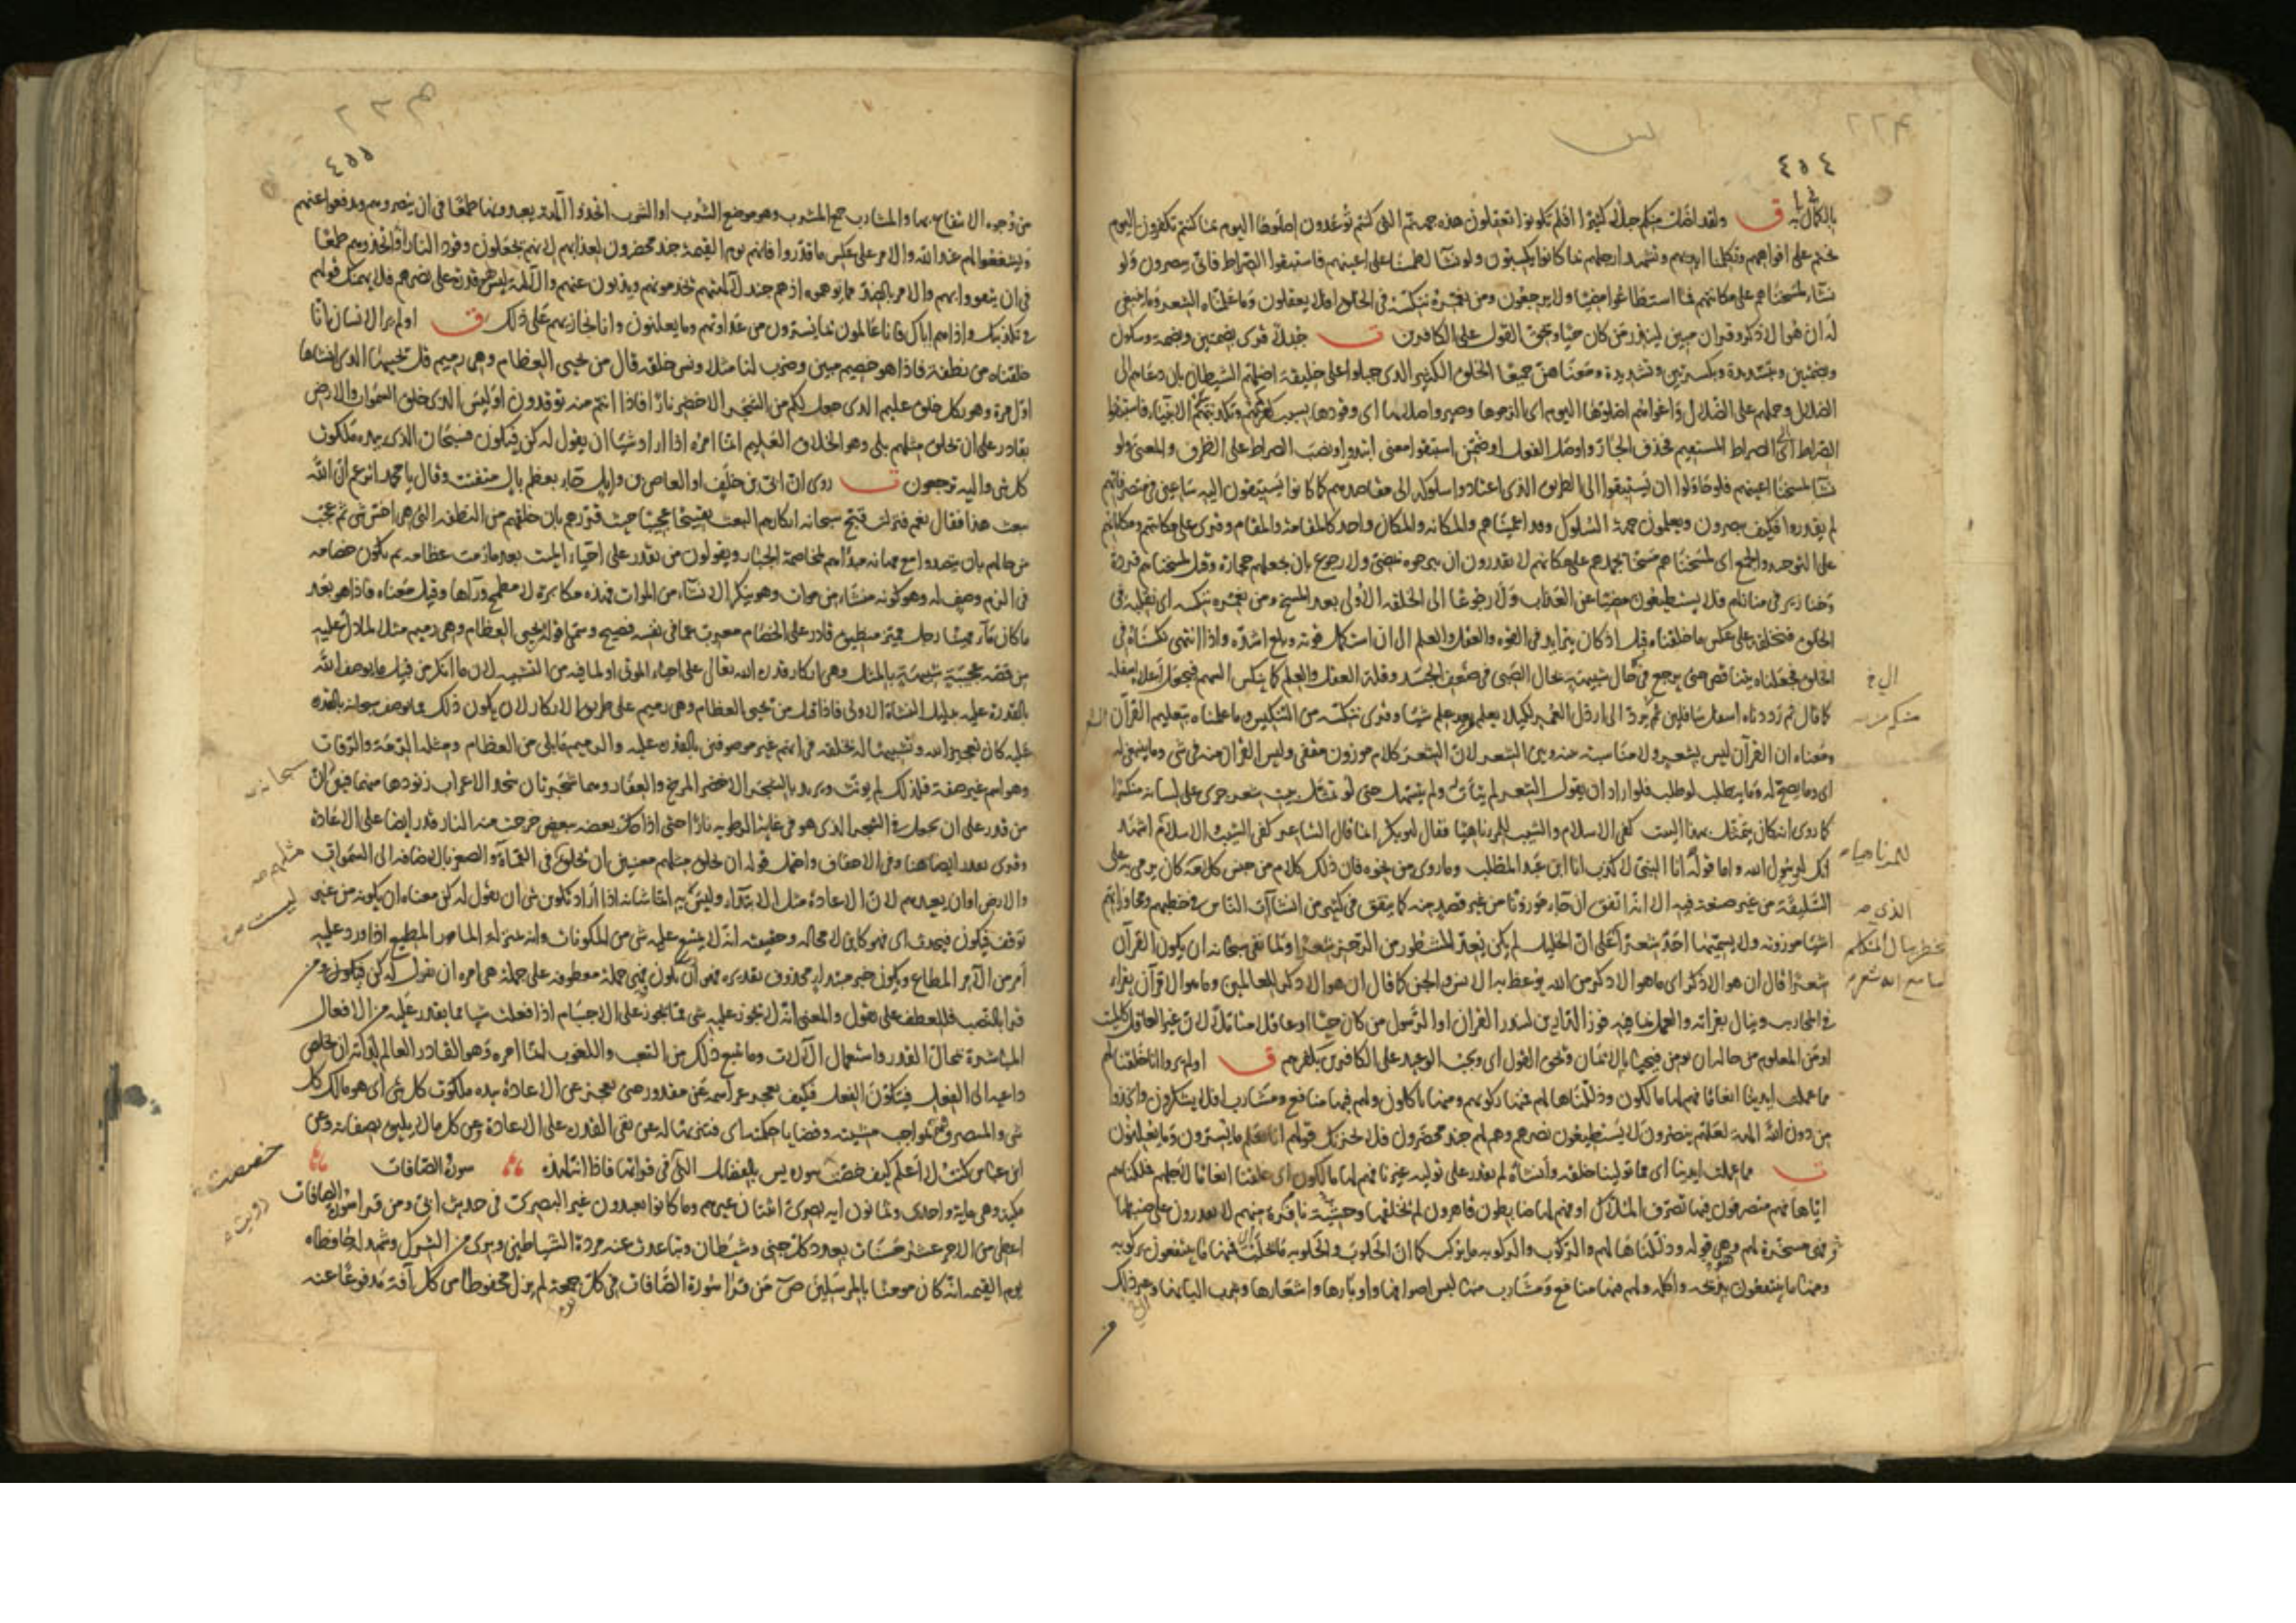 ٤٥٤
ولقد اضل منكم جبلا كثيرا افلم تكونوا تعقلون هذه جهنم التي كنتم توعدون اصلوها اليوم بما كنتم تكفرون اليوم
نختم على افواههم وتكلمنا ايديهم وتشهد ارجلهم بما كانوا يكسبون ولو نشآ لطمسنا على اعينهم فاستبقوا الصراط فانى يبصرون ولو
نشآء لمسخناهم على مكانتهم فما استطاعوا مضيا ولا يرجعون ومن نعمره ننكسه في الخلق افلا يعقلون وما علمناه الشعر وما ينبغي
له ان هو الا ذكر وقرآن مبين لينذر من كان حيا ويحق القول على الكافرين ت جبلا قرى بضمتين وضمة وسكون
وضمتين وتشديدة وبكسرتين وتشديدة ومعناهن جميعا الخلق الكثير الذى
الصراط اى الى الصراط المستقيم فحذف الجار واوصل الفعل او ضمن استبقوا معنى ابتدروا او نصب الصراط على الظرف والمعنى ولو
نشآ لمسحنا اعينهم فلو حاولوا ان يستبقوا الى الطريق الذى اعتادوا سلوكه الى مقاصدهم كما كانوا يستبقون اليه ساعين في متصرفاتهم
لم يقدروا فكيف يبصرون ويعلمون جهة السلوك وقد اعميناهم والمكانه والمكان واحد كالمقامة والمقام وقرى على مكانتهم ومكاناتهم
على التوحيد والجمع اى لمسخناهم مسخا يجمدهم على مكانهم لا يقدرون ان يبرحوه بمضى ولا رجوع بان يجعلهم حجارة وقيل لمسخناهم قردة
وخنازير في منازلهم فلا يستطيعون مضيا عن العذاب ولا رجوعا الى الخلقه الأولى بعد المسخ ومن نعمره ننكسه اى نقلبه في
الخلق فنخلقه على عكس ما خلقناه قبل اذ كان يتزايد في القوه والعقل والعلم الى ان استكمل قوته وبلغ اشده واذا انتهى نكسناه في
الخلق فجعلناه يتناقص حتى يرجع في حال شبيهة بحال الصبى في ضعف الجسد وقلة العقل والعلم كما ينكس السهم فيجعل اعلاه اسفله
كما قال ثم رددناه اسفل سافلين ثم يرد الى ارذل العمر لكيلا يعلم بعد علم شيئا وقرى ننكسه من التنكيس وما علمناه بتعليم القرآن
ومعناه ان القرآن ليس بشعر ولا مناسبة بينه وبين الشعر لان الشعر كلام موزون مقفى وليس القرآن منه في شى وما ينبغى له
اى وما يصح له وما يتطلب لو طلب فلو اراد ان يقول الشعر لم يتأت ولم يتسهل حتى لو تمثل بيت شعر جرى على لسانه منكسرا
كما روى انه كان يتمثل بهذا البيت كفى الاسلام والشيب للمرء ناهيا فقال ابو بكر انما قال الشاعر كفى الشيب والاسلام اشهد
انك لرسول الله واما قوله انا النبى لا كذب انا ابن عبد المطلب وما روى من نحوه فان ذلك كلام من جنس كلامه كان يرمى به على
السليقة من غير صنعة فيه الا انه اتفق ان جاء موزونا من غير قصد منه كما يتفق في كثير من انشآآت الناس في خطبهم ومحاوراتهم
اشيآ موزونه ولا يسميها احد شعرا على ان الخليل لم يكن يعد المشطور من الرجز شعرا ولما نفى سبحانه ان يكون القرآن
شعرا قال ان هو الا ذكر اى ما هو الا ذكر من الله يوعظ به الانس والجن كما قال ان هو الا ذكر للعالمين وما هو الا قرآن يقرأ
في المحاريب وينال بقراته والعمل بما فيه فوز الدارين لينذر القرآن او الرسول من كان حيا اى عاقلا متأملا لان غير العاقل كالميت
او من المعلوم من حاله ان يومن فيحيى بالايمان ويحق القول اى ويجب الوعيد على الكافرين بكفرهم ق اولم يروا انا خلقنا لهم
مما عملت ايدينا انعاما فهم لها مالكون وذللناها لهم فمنها ركوبهم ومنها ياكلون ولهم فيها منافع ومشارب افلا يشكرون واتخذوا
من دون الله آلهة لعلهم ينصرون لا يستطيعون نصرهم وهم لهم جند محضرون فلا يحزنك قولهم انا نعلم ما يسرون وما يعلنون
ت مما عملت ايدينا اى مما تولينا خلقه وانشاه لم يقدر على توليه غيرنا فهم لها مالكون اى خلقنا انعاما لاجلهم فملكناهم
اياها فهم متصرفون فيها تصرف الملاك او فهم لها ضابطون قاهرون لم نخلقها وحشية نافرة منهم لا يقدرون على ضبطها
فهى مسخرة لهم وهو قوله وذللناها لهم والركوب والركوبه ما يركب كما ان الحلوب والحلوبه ما يحلب
ومنها ما ينتفعون بذبحه واكله ولهم فيها منافع ومشارب منها لبس اصوافها واوبارها واشعارها وشرب البانها وغير ذلك
٤٥٥
من وجوه الانتفاع بها والمشارب جمع المشرب وهو موضع الشرب او الشرب اتخذوا الآلهة يعبدونها طمعا في ان ينصروهم ويدفعوا عنهم
ويشفعوا لهم عند الله والامر على عكس ما قدروا فانهم يوم القيمة جند محضرون لعذابهم لانهم يجعلون وقود النار او اتخذوهم طمعا
في ان يتقووا بهم والامر بالضد مما توهموه اذ هم جند لآلهتهم يخدمونهم ويذبون عنهم والآلهة ليس لهم قدرة على نصرهم فلا يهمنك قولهم
في تكذيبك واذاهم اياك فانا عالمون بما يسترون من عداوتهم وما يعلنون وانا نجازيهم على ذلك ق اولم ير الانسان انا
خلقناه من نطفة فاذا هو خصيم مبين وضرب لنا مثلا ونسى خلقه قال من يحيى العظام وهى رميم قل يحييها الذى انشاها
اول مرة وهو بكل خلق عليم الذى جعل لكم من الشجر الاخضر نارا فاذا انتم منه توقدون اوليس الذى خلق السموات والارض
بقادر على ان يخلق مثلهم بلى وهو الخلاق العليم انما امره اذا اراد شيئا ان يقول له كن فيكون فسبحان الذى بيده ملكوت
كل شى واليه ترجعون ت روى ان ابى بن خلف او العاص بن وايل جاء بعظم بال متفتت وقال يا محمد اتزعم ان الله
يبعث هذا فقال نعم فنزلت قبح سبحانه انكارهم البعث تقبيحا عجيبا حيث قررهم بان خلقهم من النطفه التى هى اخس شى ثم عجب
من حالهم بان يتصدوا مع مهانه مبداهم لمخاصمة الجبار ويقولون من يقدر على احياء الميت بعد ما رمت عظامه ثم يكون خصامه
في الزم وصف له وهو كونه منشاء من موات وهو ينكر الانشاء من الموات فهذه مكابرة لا مطمح ورآها وقيل معناه فاذا هو بعد
ما كان مآء مهينا رجل مميز منطيق قادر على الخصام معرب عما في نفسه فصيح وسمى قوله من يحيى العظام وهى رميم مثلا لما دل عليه
من قصة عجيبة شبيهة بالمثل وهى انكار قدرة الله تعالى على احياء الموتى او لما فيه من التشبيه لان ما انكر من قبيل ما يوصف الله
بالقدرة عليه بدليل النشاة الاولى فاذا قيل من يحيى العظام وهى رميم على طريق الانكار لان يكون ذلك مما يوصف سبحانه بالقدره
عليه كان تعجيزا لله وتشبيها له بخلقه في انهم غير موصوفين بالقدرة عليه والرميم ما بلى من العظام ومثله الرمة والرفات
وهو اسم غير صفة فلذلك لم يونث ويريد بالشجر الاخضر المرخ والعفار وهما شجرتان يتخذ الاعراب زنودها منهما فبين ان
من قدر على ان يجعل في الشجر الذى هو في غاية الرطوبه نارا حتى اذا حك بعضه ببعض خرجت منه النار قدر ايضا على الاعادة
وقرى يقدر ايضا هنا وفى الاحقاف واحتمل قوله ان يخلق مثلهم معنيين ان يخلق في القماءة والصغر بالاضافة الى السموات
والارض او ان يعيدهم لان الاعادة مثل الابتدآء وليس به انما شانه اذا اراد تكوين شى ان يقول له كن معناه ان يكونه من غير
توقف فيكون فيحدث اى فهو كاين لا محاله وحقيقته انه لا يمتنع عليه شى من المكونات وانه بمنزلة المامور المطيع اذا ورد عليه
امر من الآمر المطاع ويكون خبر مبتدا محذوف تقديره فهو يكون فهى جملة معطوفه على جملة هى امره ان يقول له كن فيكون ومن
قرا بالنصب فللعطف على يقول والمعنى انه لا يجوز عليه شى مما يجوز على الاجسام اذا فعلت شيئا مما يقدر عليه من الافعال
المباشرة بمحال القدر واستعمال الآلات وما يتبع ذلك من التعب واللغوب انما امره وهو القادر العالم لذاته ان يخلص
داعيه الى الفعل فيتكون الفعل فكيف يعجز عز اسمه عن مقدور حتى يعجز عن الاعادة بيده ملكوت كل شى اى هو مالك كل
شى والمتصرف فيه بمواجب مشيته وقضايا حكمته اى فتنزيها له عن نفى القدرة على الاعادة وعن كل ما لا يليق بصفاته وعن
ابن عباس كنت لا اعلم كيف خصت سوره يس بالفضائل التى في قرآتها فاذا انه لهذه سورة الصافات
مكية وهى ماية واحدى وثمانون ايه بصرى اثنتان غيرهم وما كانوا يعبدون غير البصرى في حديث ابى ومن قرا سورة الصافات
اعطى من الاجر عشر حسنات بعدد كل جنى وشيطان وتباعدت عنه مردة الشياطين وبرى من الشرك وشهد له حافظاه
يوم القيمه انه كان مومنا بالمرسلين ص من قرا سورة الصافات في كل جمعة لم يزل محفوظا من كل آفة مدفوعا عنه